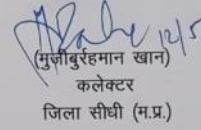 12/5
(मुजीबुर्रहमान खान)
कलेक्टर
जिला सीधी (म.प्र.)